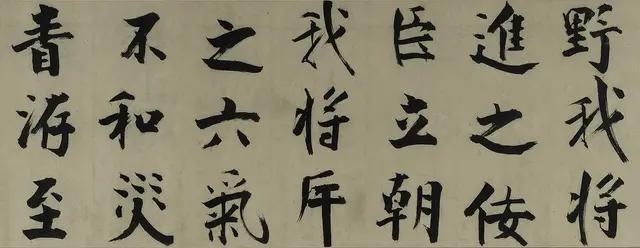 野我将
進之佞
臣立朝
我将斥
之六氣
不和災
眚洊至